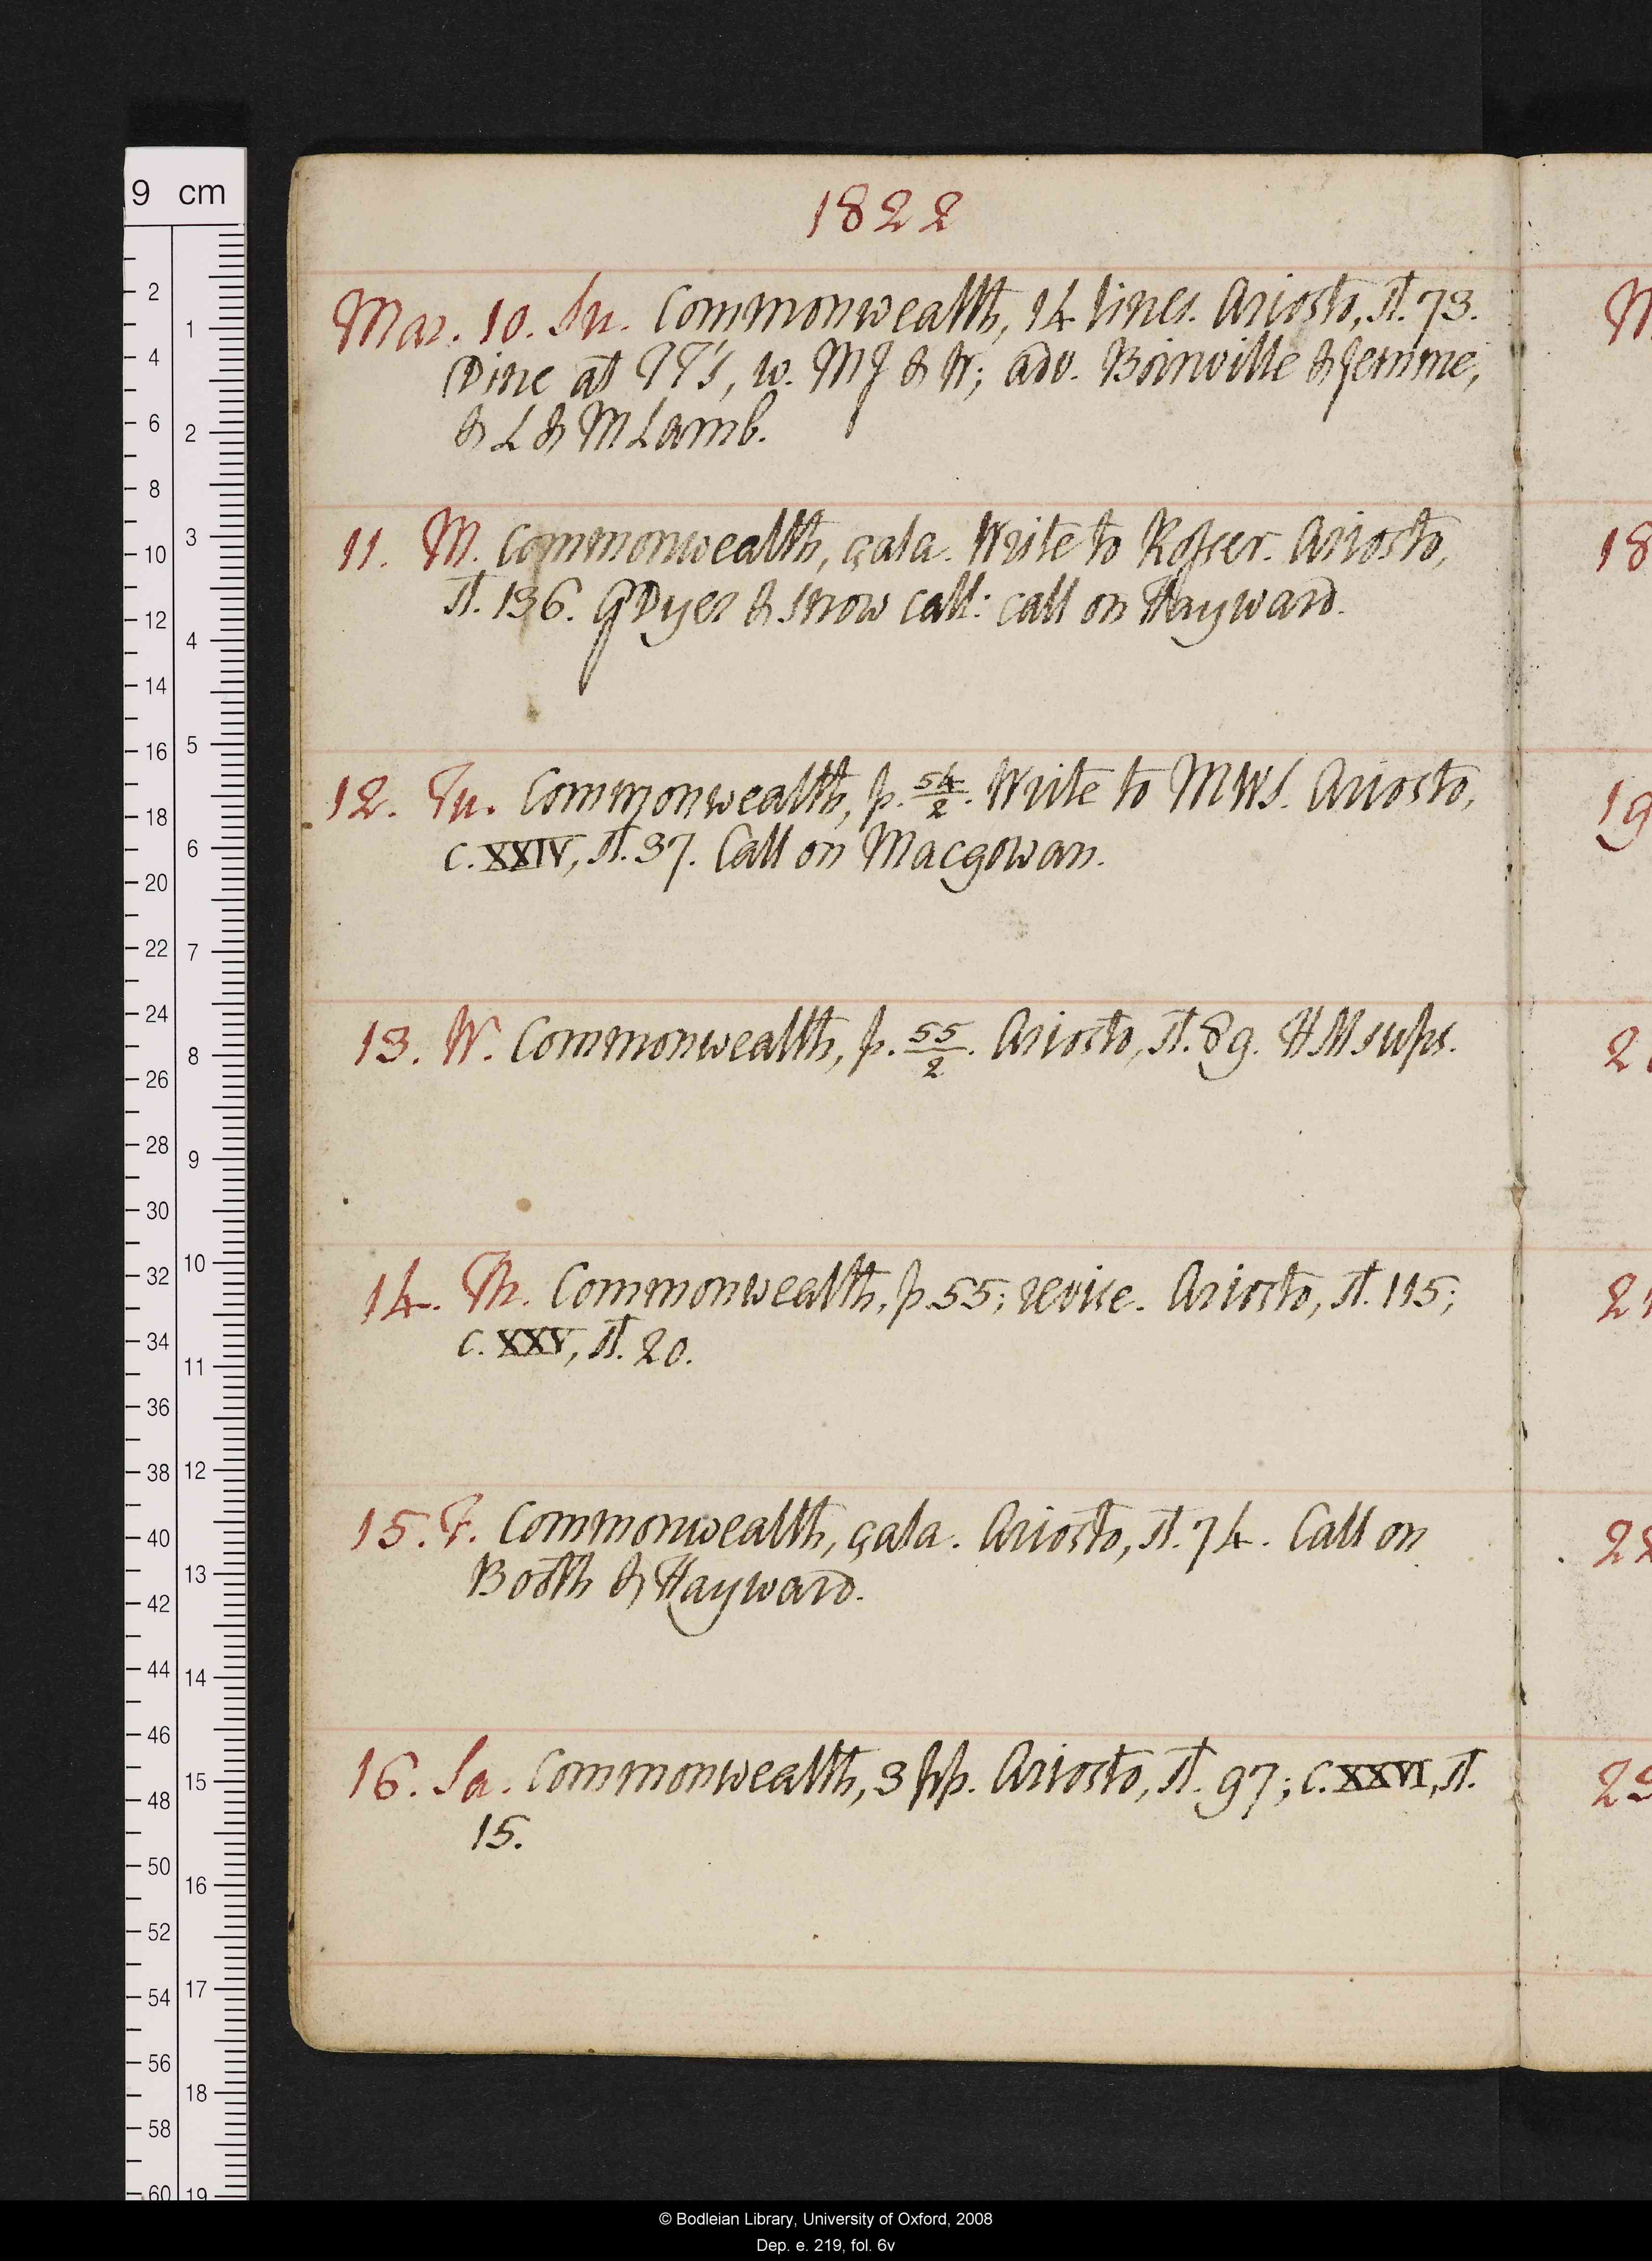 1822
Mar. 10. Su. Commonwealth, 14 lines. Ariosto, st. 73.
Dine at TT's, w. MJ & W; adv. Boinville & Jemme,
& L & M Lamb.
11. M. Commonwealth, çala. Write to Rosser. Ariosto,
st. 136. G Dyer & Snow call: call on Hayward.
12. Tu. Commonwealth, p. 54/2. Write to MWS. Ariosto,
c. XXIV, st. 37. Call on Macgowan.
13. W. Commonwealth, p. 55/2. Ariosto, st. 89. HM sups.
14. Th. Commonwealth, p. 55; revise. Ariosto, st. 115;
c. XXV, st. 20.
15. F. Commonwealth, çala. Ariosto, st. 74. Call on
Booth & Hayward.
16. Sa. Commonwealth, 3 pp. Ariosto, st. 97; c. XXVI, st.
15.
9 cm
2
4
6
8
10
12
14
16
18
20
22
24
26
28
30
32
34
36
38
40
42
44
46
48
50
52
54
56
58
60
1
2
3
4
5
6
7
8
9
10
11
12
13
14
15
16
17
18
19
M
18
19
2
21
22
23
© Bodleian Library, University of Oxford, 2008
Dep. e. 219, fol. 6v